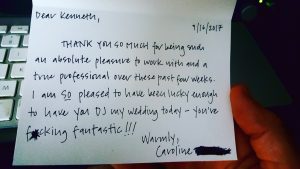 Dear Kenneth,
9/16/2017
THANK YOU SO MUCH for being such
an absolute pleasure to work with and a
true professional over these past few weeks.
I am SO pleased to have been lucky enough
to have you DJ my wedding today - you've
fucking fantastic!!!
Warmly,
Caroline